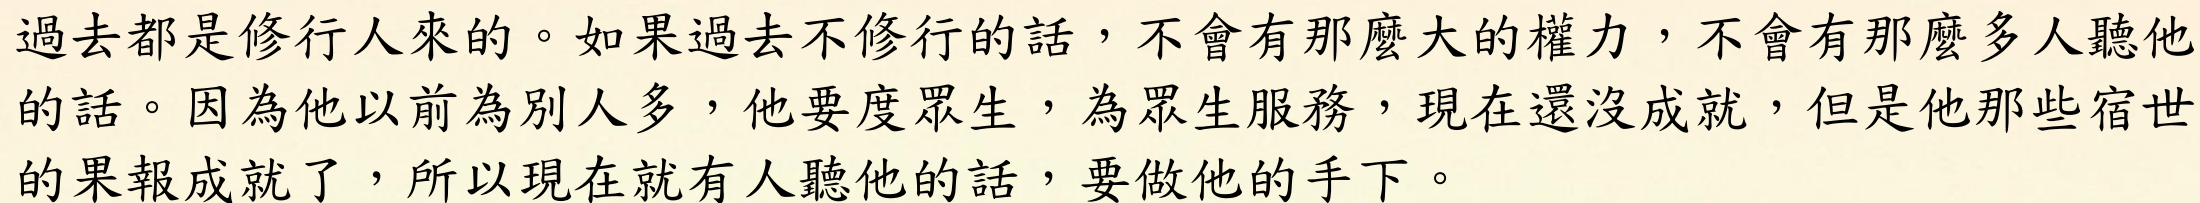 過去都是修行人來的。如果過去不修行的話，不會有那麼大的權力，不會有那麼多人聽他
的話。因為他以前為別人多，他要度眾生，為眾生服務，現在還沒成就，但是他那些宿世
的果報成就了，所以現在就有人聽他的話，要做他的手下。